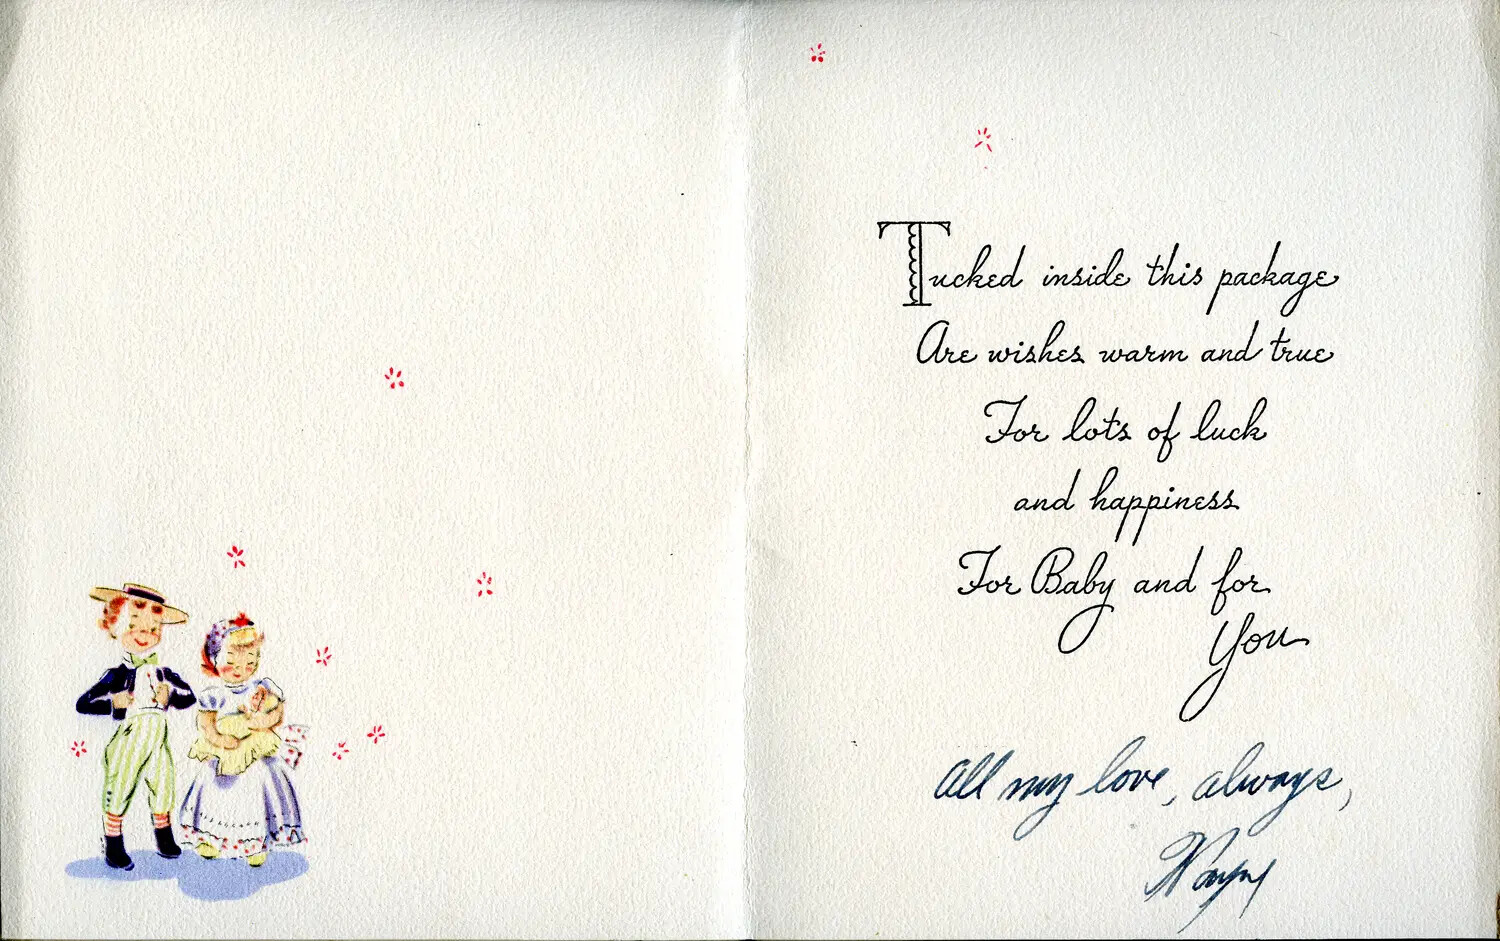 Tucked inside this package
Are wishes warm and true
For lots of luck
and happiness
For Baby and for
You
All my love, always,